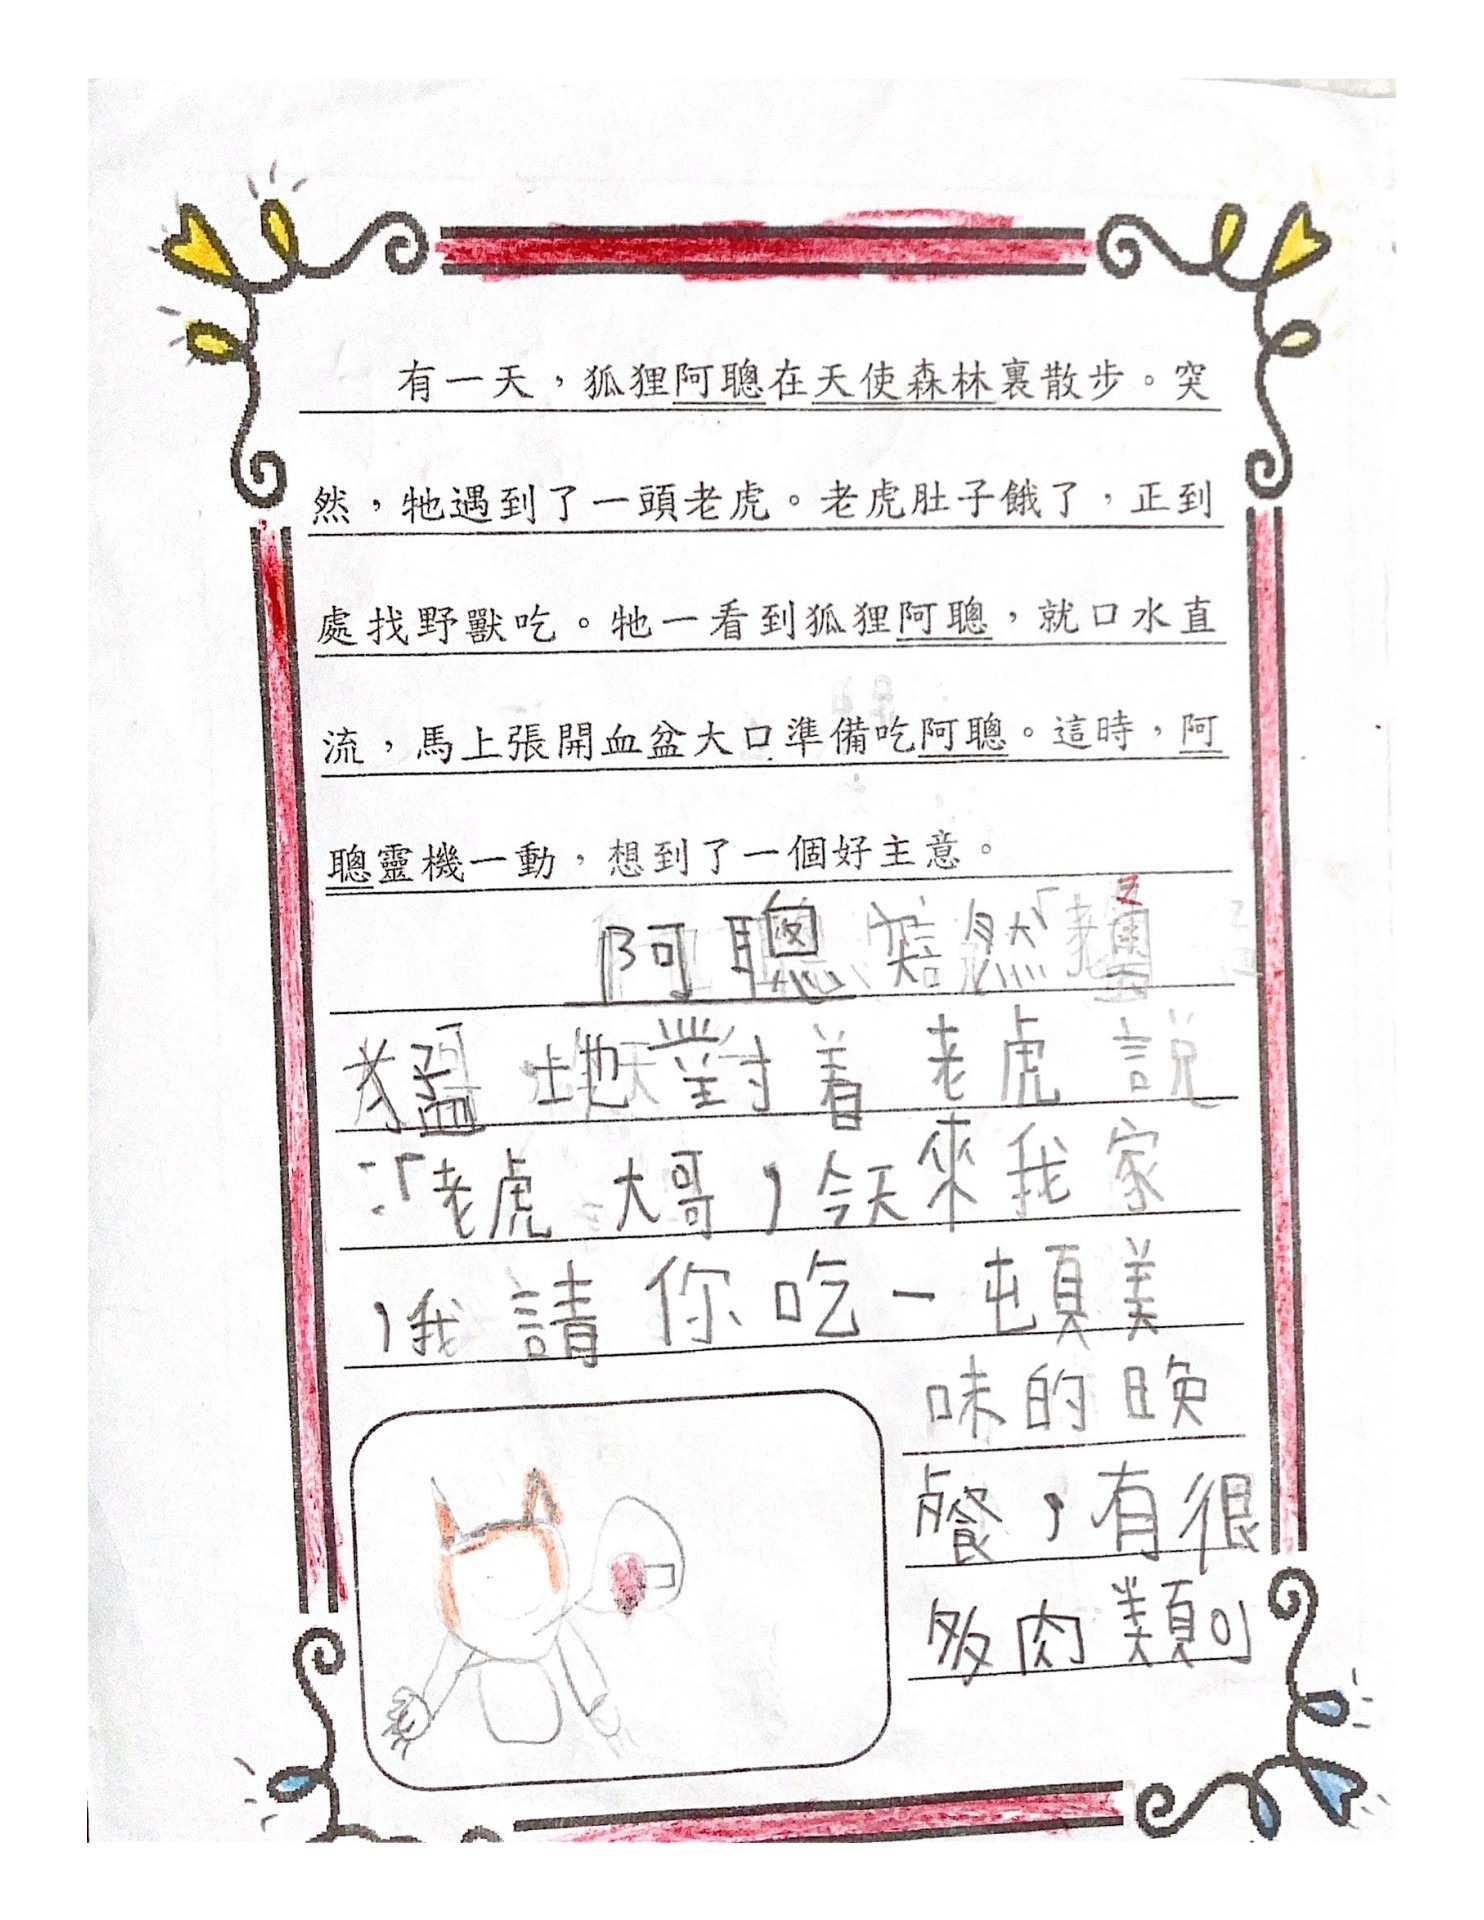 有一天，狐狸阿聰在天使森林裏散步。突
然，牠遇到了一頭老虎。老虎肚子餓了，正到
處找野獸吃。牠一看到狐狸阿聰，就口水直
流，馬上張開血盆大口準備吃阿聰。這時，阿
聰靈機一動，想到了一個好主意。
阿聰突然
猛地對着老虎說
：「老虎大哥，今天來我家
，我請你吃一頓美
味的晚
餐，有很
多肉類。」